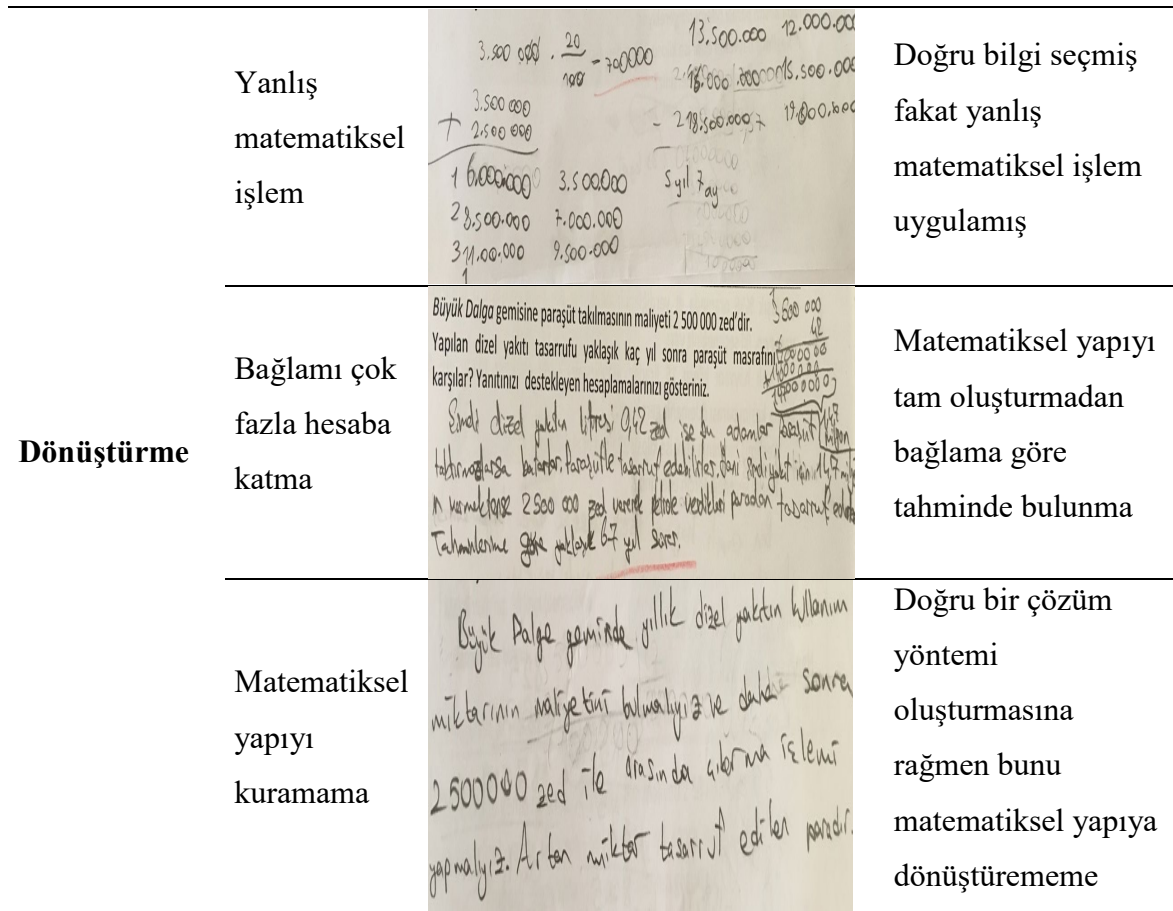 Dönüştürme
Yanlış
matematiksel
işlem
3.500 000 . 20/100 = 700000
3.500 000
+ 2.500 000
1 6.000.000 3.500.000
2 8.500.000 7.000.000
3 11.00.000 9.500.000
13.500.000 12.000.000
16.000.000 15.500.000
18.500.000
5 yıl 7 ay
Doğru bilgi seçmiş
fakat yanlış
matematiksel işlem
uygulamış
Bağlamı çok
fazla hesaba
katma
Büyük Dalga gemisine paraşüt takılmasının maliyeti 2 500 000 zed'dir.
Yapılan dizel yakıtı tasarrufu yaklaşık kaç yıl sonra paraşüt masrafını
karşılar? Yanıtınızı destekleyen hesaplamalarınızı gösteriniz.
Şimdi dizel yakıtın litresi 0,42 zed ise bu adamlar paraşüt
taktırmazlarsa batarlar. Paraşütle tasarruf edebilirler. Yani şimdi yakıt için 1,47
vermektense 2 500 000 zed vererek petrole verdikleri paradan tasarruf
Tahminlerime göre yaklaşık 6-7 yıl sürer.
3 500 000
42
Matematiksel yapıyı
tam oluşturmadan
bağlama göre
tahminde bulunma
Matematiksel
yapıyı
kuramama
Büyük Dalga geminde yıllık dizel yakıtın kullanım
miktarının maliyetini bulmalıyız ve daha sonra
2500000 zed ile arasında çıkarma işlemi
yapmalıyız. Artan miktar tasarruf edilen paradır.
Doğru bir çözüm
yöntemi
oluşturmasına
rağmen bunu
matematiksel yapıya
dönüştürememe